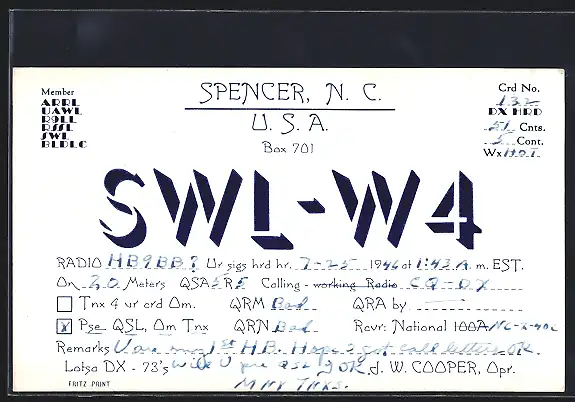 SPENCER, N. C.
U. S. A.
Box 701
Member
ARRL
UAWL
R9LL
RSSL
SWL
BLDLC
Crd No.
132
DX HRD
51 Cnts.
5 Cont.
Wx HOT
SWL-W4
RADIO HB9BB? Ur sigs hrd hr. 7-25 1946 at 1:43 A. m. EST.
On 20 Meters QSA 5 R 5 Calling - working Radio CQ-DX
Tnx 4 ur crd Om. QRM Bad QRA by
X Pse QSL, Om Tnx QRN Bad Rcvr: National 100A NC-2-40C
Remarks U are my 1st HB. Hope I got call letters OK.
Lotsa DX - 73's Will U pse QSL if OK J. W. COOPER, Opr.
FRITZ PRINT MNY TNKS.